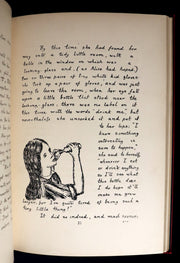 By this time she had found her
way into a tidy little room, with a
table in the window on which was a
looking-glass and, (as Alice had hoped)
two or three pairs of tiny white kid gloves:
she took up a pair of gloves, and was just
going to leave the room, when her eye fell
upon a little bottle that stood near the
looking-glass: there was no label on it
this time with the words "drink me," but
nevertheless she uncorked it and put it
to her lips: "I
know something
interesting is
sure to happen,"
she said to herself,
"whenever I eat
or drink anything,
so I'll see what
this bottle does.
I do hope it'll
make me grow
larger, for I'm quite tired of being such a
tiny little thing!"
It did so indeed, and much sooner